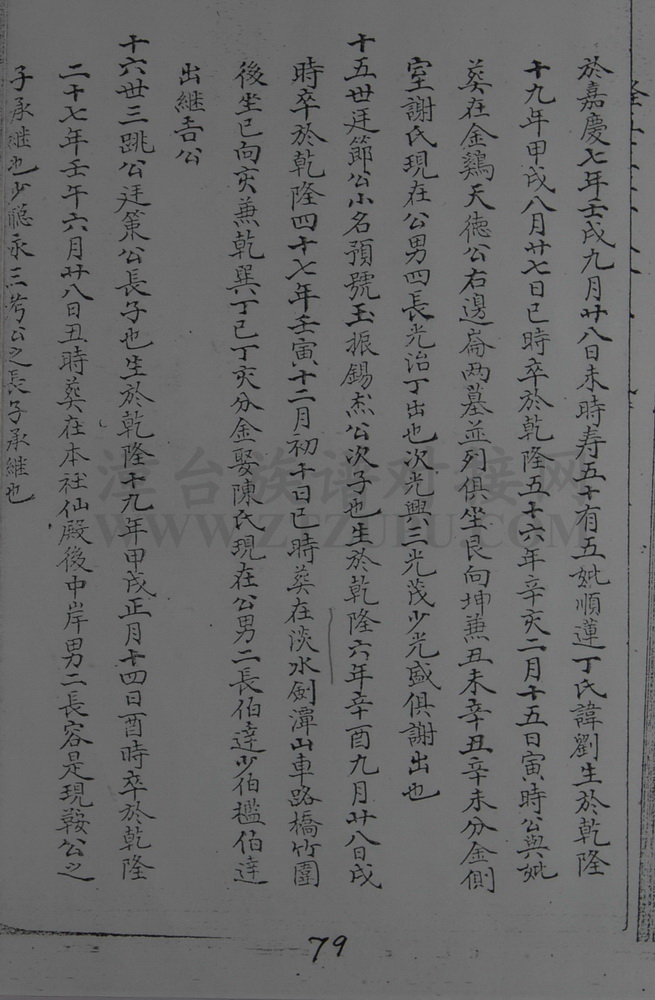 於嘉慶七年壬戌九月廿八日未時寿五十有五妣順蓮丁氏諱劉生於乾隆
十九年甲戌八月廿七日巳時卒於乾隆五十六年辛亥二月十五日寅時公與妣
葵在金鷄天徳公右邊崙两墓並列俱坐艮向坤兼丑未辛丑辛未分金側
室謝氏現在公男四長光治丁出也次光興三光茂少光盛俱謝出也
十五世廷節公小名預號玉振錫杰公次子也生於乾隆六年辛酉九月廿八日戌
時卒於乾隆四十七年壬寅十二月初十日巳時葵在淡水劍潭山車路橋竹圍
後坐巳向亥兼乾巽丁巳丁亥分金娶陳氏現在公男二長伯達少伯槛伯達
出継吉公
十六世三跳公廷策公長子也生於乾隆十九年甲戌正月十四日酉時卒於乾隆
二十七年壬午六月廿八日丑時葵在本社仙殿後中岸男二長容是現鞍公之
子承継也少聪永三考公之長子承継也
79
漳台族谱对接网
WWW.ZTZUPU.COM